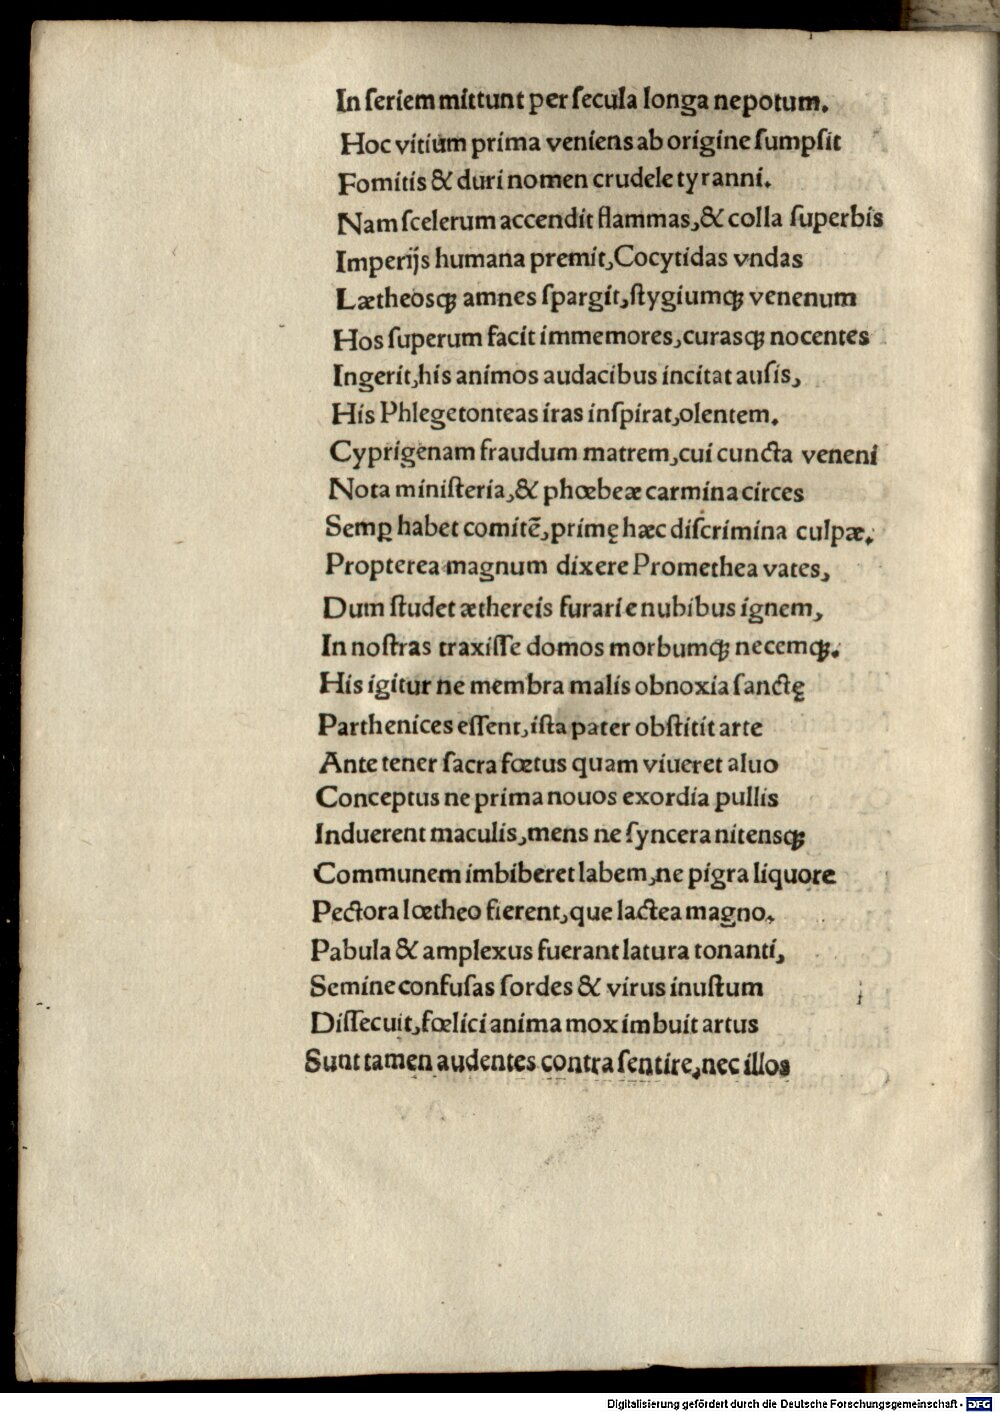 In ſeriem mittunt per ſecula longa nepotum.
Hoc vitium prima veniens ab origine ſumpſit
Fomitis & duri nomen crudele tyranni.
Nam ſcelerum accendit flammas,& colla ſuperbis
Imperijs humana premit,Cocytidas vndas
Lætheosqꝫ amnes ſpargit,ſtygiumqꝫ venenum
Hos ſuperum facit immemores,curasqꝫ nocentes
Ingerit,his animos audacibus incitat auſis,
His Phlegetonteas iras inſpirat,olentem.
Cyprigenam fraudum matrem,cui cuncta veneni
Nota miniſteria,& phœbeæ carmina circes
Semꝑ habet comitē,primę hæc diſcrimina culpæ.
Propterea magnum dixere Promethea vates,
Dum ſtudet æthereis furari e nubibus ignem,
In noſtras traxiſſe domos morbumqꝫ necemqꝫ.
His igitur ne membra malis obnoxia ſanctę
Parthenices eſſent,iſta pater obſtitit arte
Ante tener ſacra fœtus quam viueret aluo
Conceptus ne prima nouos exordia pullis
Induerent maculis,mens ne ſyncera nitensqꝫ
Communem imbiberet labem,ne pigra liquore
Pectora lœtheo fierent,que lactea magno.
Pabula & amplexus fuerant latura tonanti,
Semine confuſas ſordes & virus inuſtum
Diſſecuit,fœlici anima mox imbuit artus
Sunt tamen audentes contra ſentire,nec illos
Digitalisierung gefördert durch die Deutsche Forschungsgemeinschaft - DFG